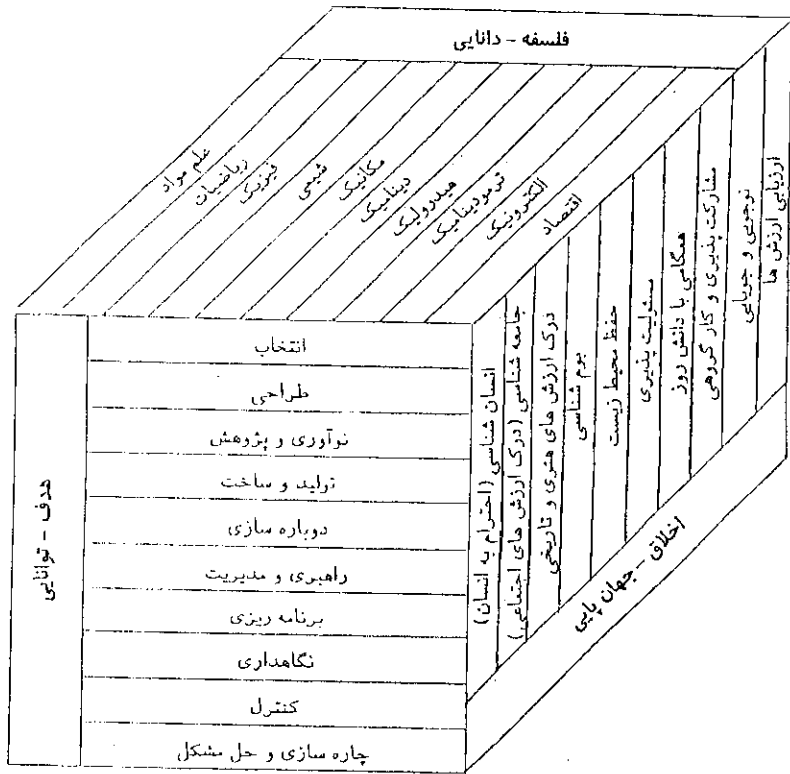 فلسفه - دانایی
علم مواد
ریاضیات
فیزیک
شیمی
مکانیک
دینامیک
هیدرولیک
ترمودینامیک
الکترونیک
اقتصاد
هدف - توانایی
انتخاب
طراحی
نوآوری و پژوهش
تولید و ساخت
دوباره سازی
راهبری و مدیریت
برنامه ریزی
نگاهداری
کنترل
چاره سازی و حل مشکل
اخلاق - جهان پایی
انسان شناسی (احترام به انسان)
جامعه شناسی (درک ارزش های اجتماعی)
درک ارزش های هنری و تاریخی
بوم شناسی
حفظ محیط زیست
مسئولیت پذیری
همگامی با دانش روز
مشارکت پذیری و کار گروهی
نوجویی و جویایی
ارزیابی ارزش ها